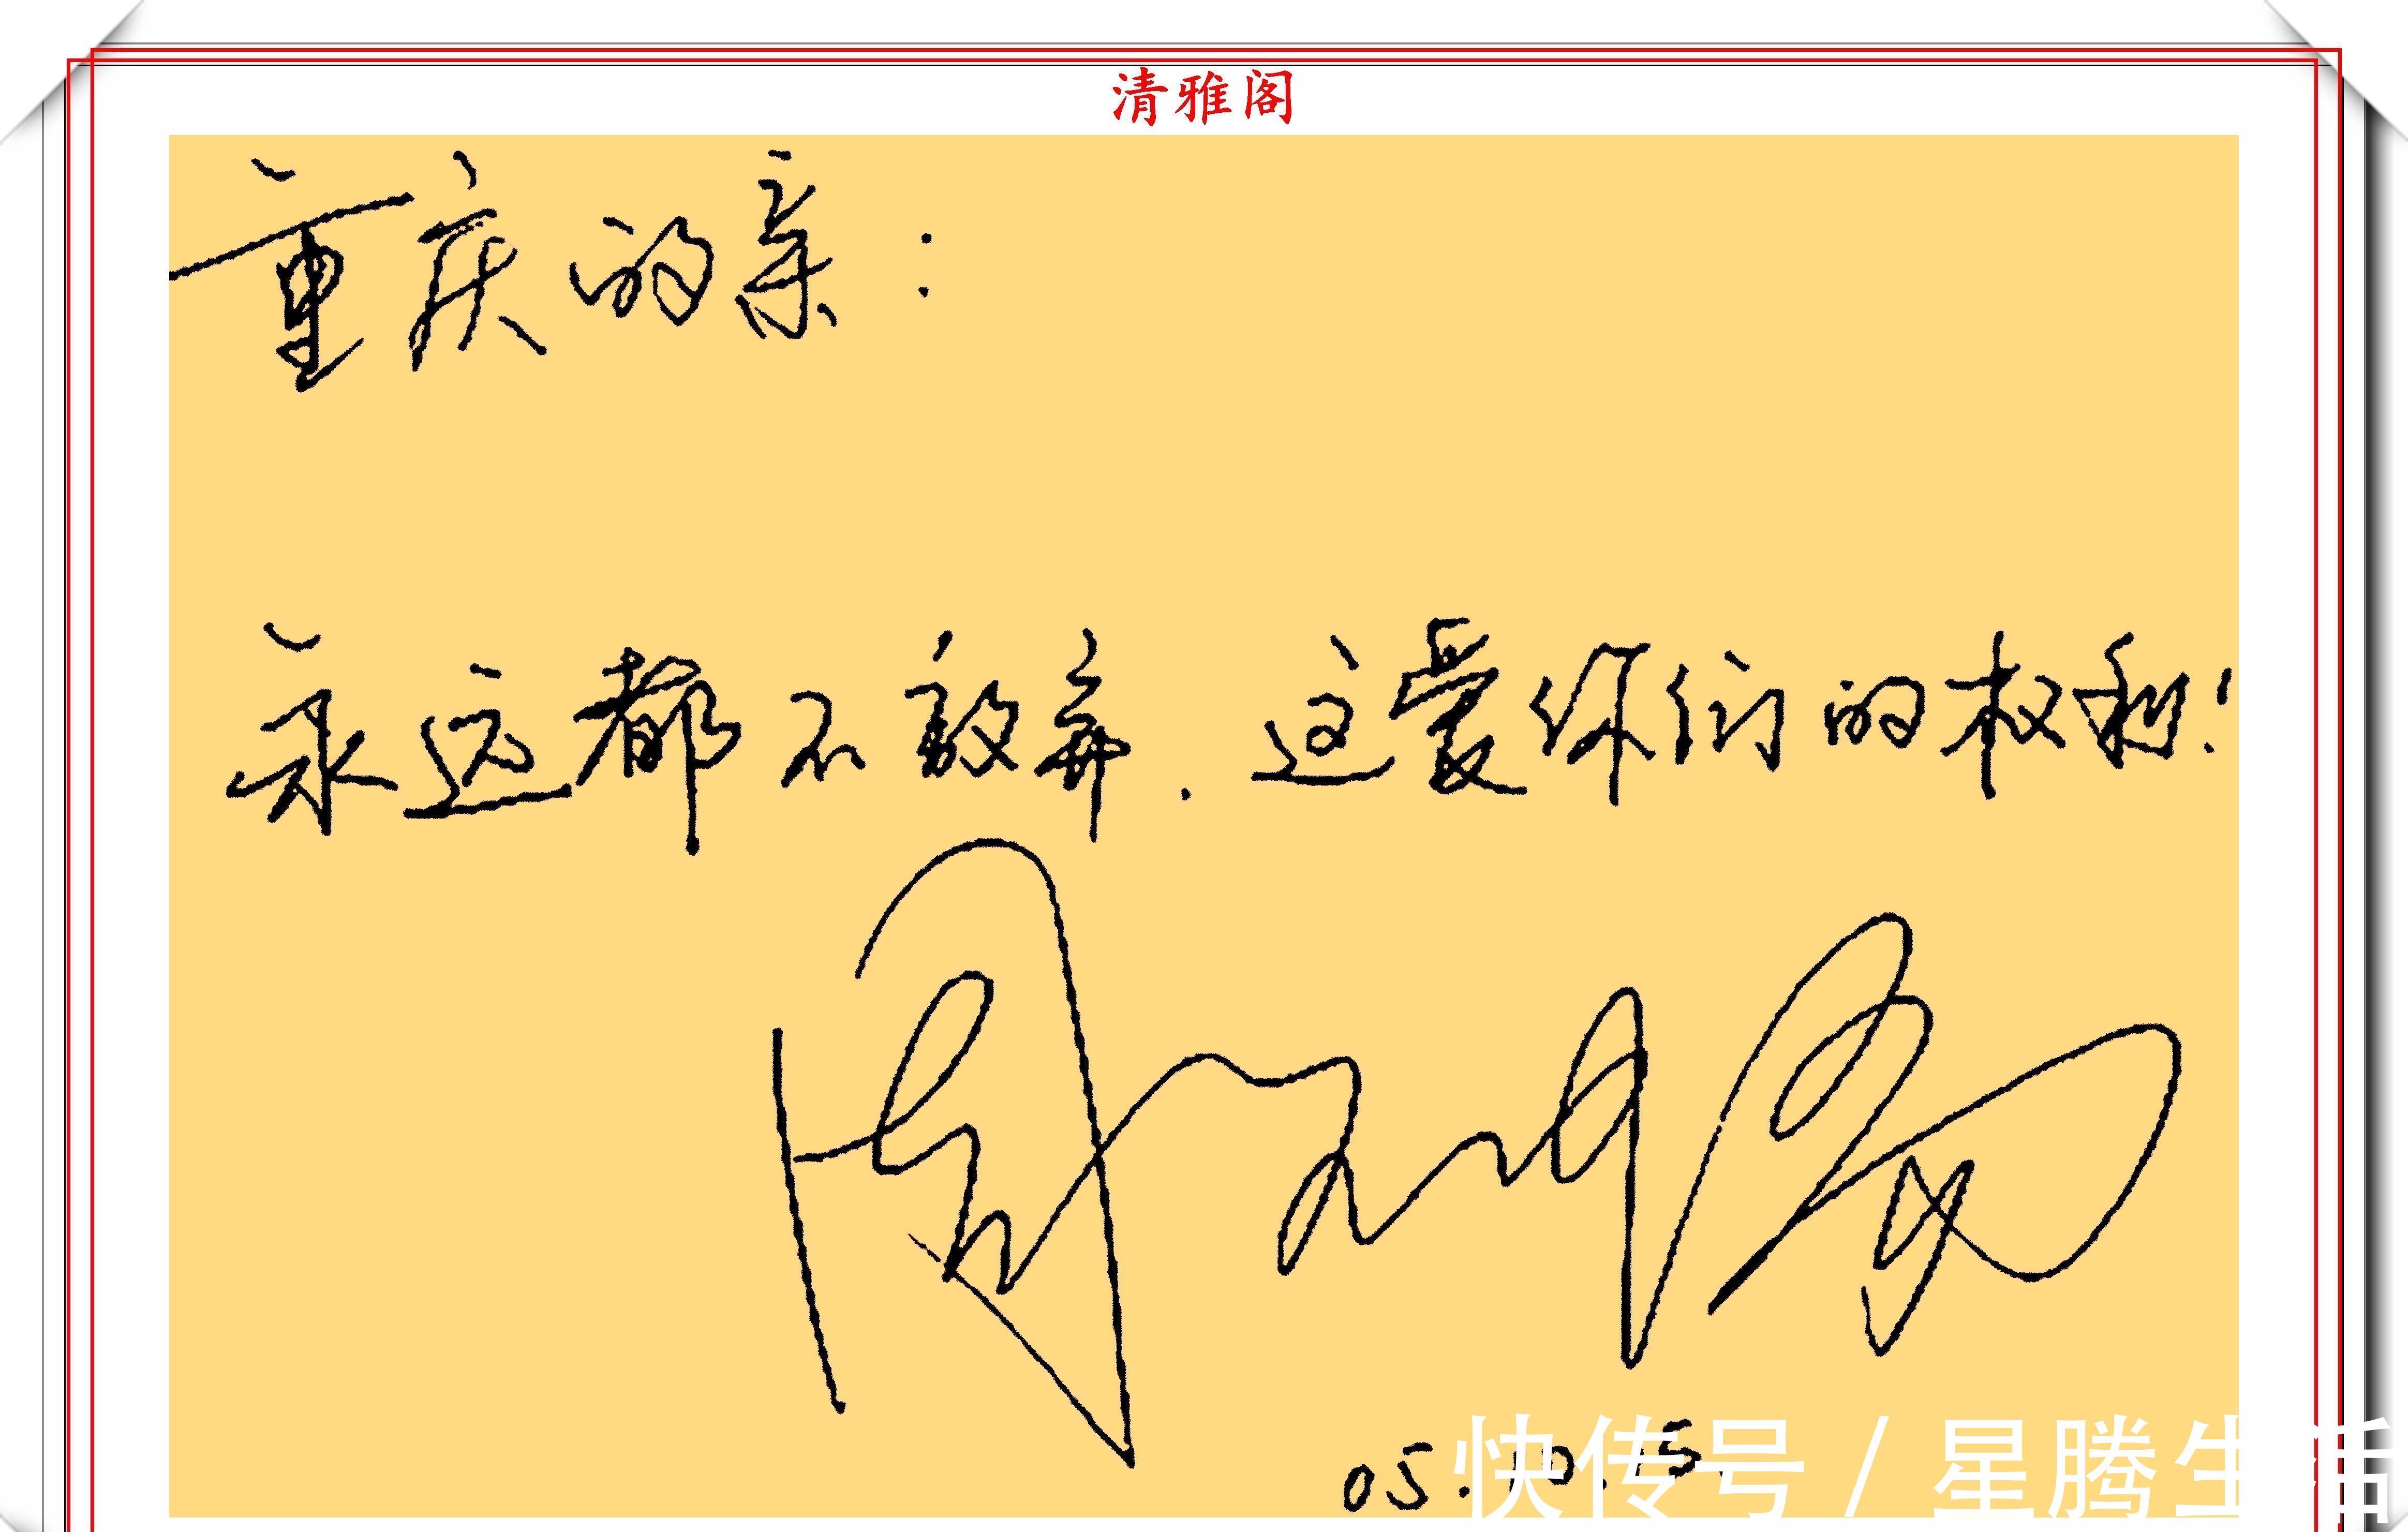 清雅阁
重庆的亲：
永远都不放弃.这爱你们的权利!
05.10.15.
快传号/星腾生活